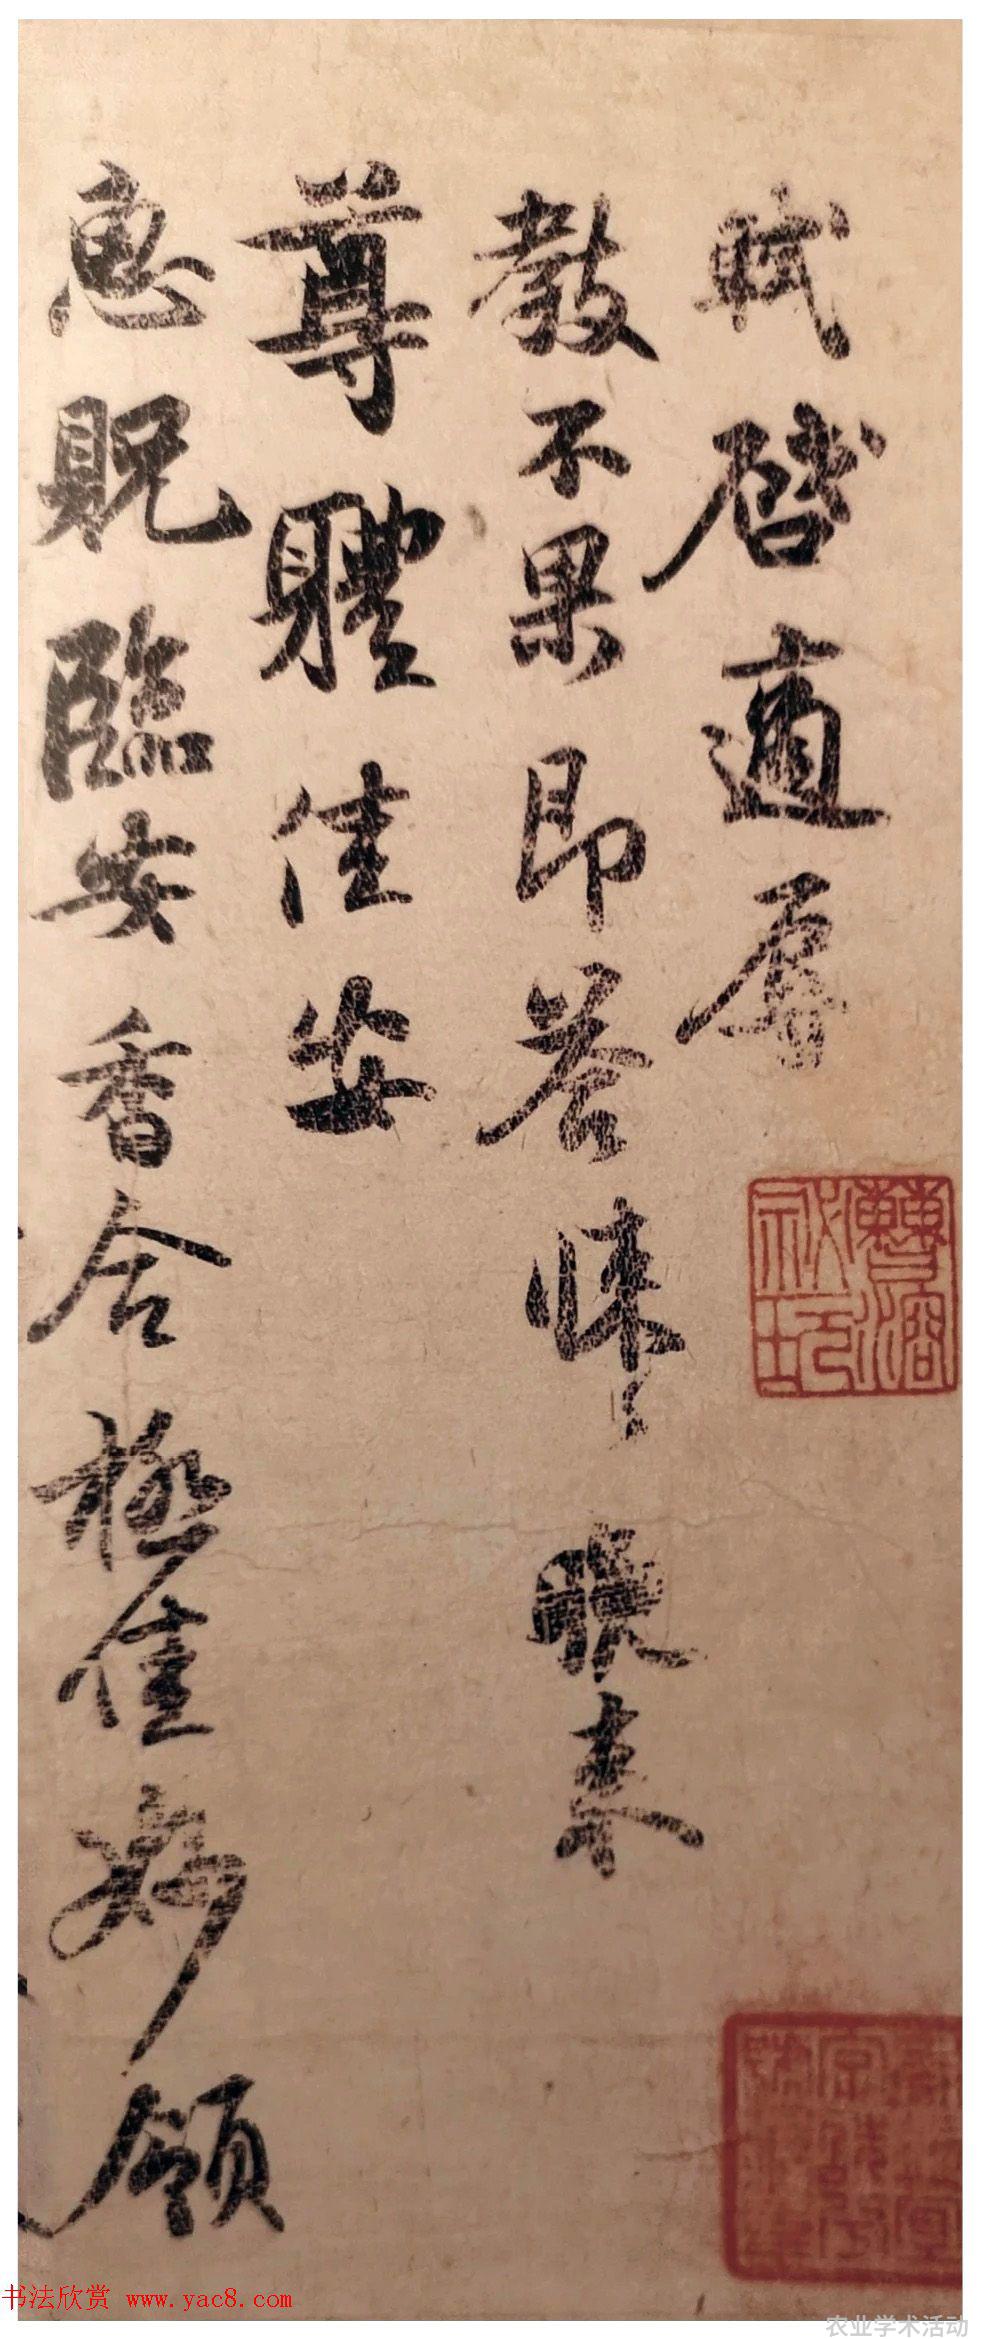 軾啓適辱
教不果即答悚悚晚来
尊體佳安
惠貺臨安香合極佳妙領
书法欣赏 www.yac8.com
农业学术活动